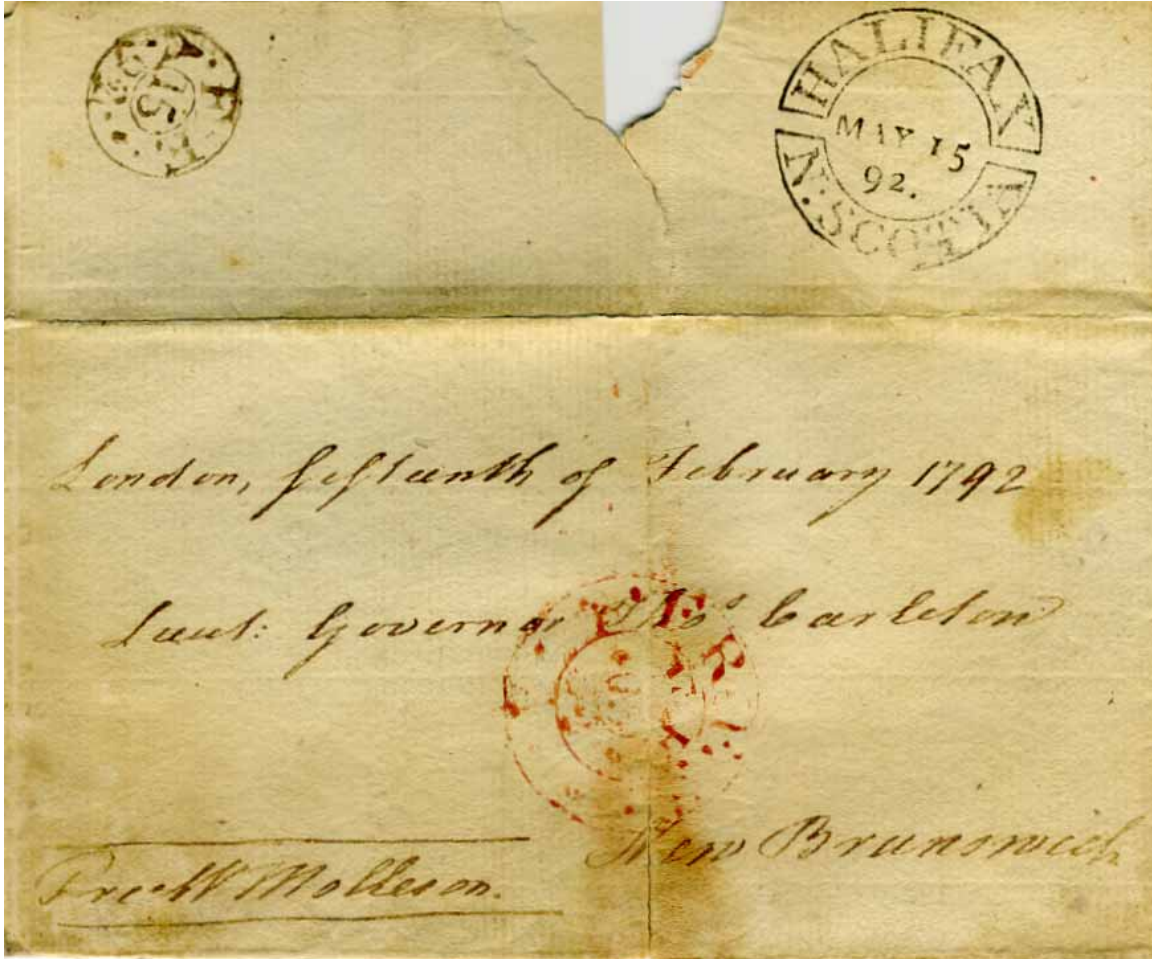 A·FE
15
92
HALIFAX
MAY 15
92.
N·SCOTIA
London, fifteenth of February 1792
Lieut: Governor Thos Carleton
New Brunswick
Free W Molleson.